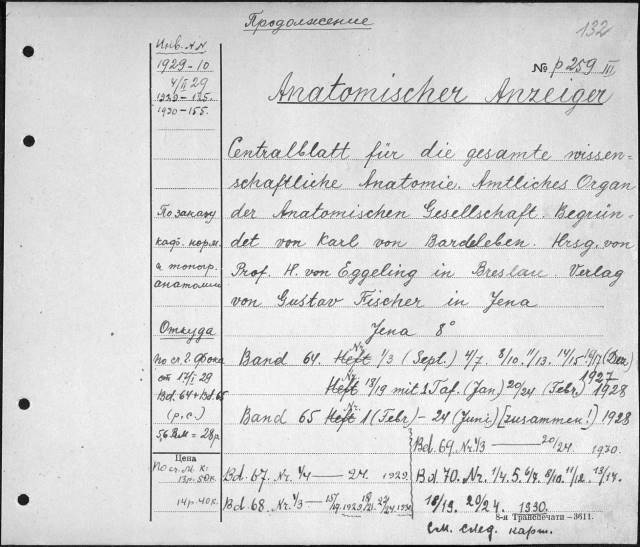 Продолжение
132
Инв. №№
1929-10
4/II 29
1929-125.
1930-155.
№ p 259 III
Anatomischer Anzeiger
Centralblatt für die gesamte wissen-
schaftliche Anatomie. Amtliches Organ
der Anatomischen Gesellschaft. Begrün-
det von Karl von Bardeleben. Hrsg. von
Prof. H. von Eggeling in Breslau. Verlag
von Gustav Fischer in Jena
Jena 8°
По заказу
каф. норм.
и топогр.
анатомии
Откуда
по сч. г. Фока
от 17/I 29
Bd. 64 + Bd. 65
(р.с.)
56 RM = 28 р.
Цена
По сч. М. К.
13 р. 50 к.
14 р. 40 к.
Band 64. Heft Nr. 1/3 (Sept.) 4/7. 8/10. 11/13. 14/15 16/17 (Dez)
1927
Heft Nr. 18/19 mit 1 Taf. (Jan) 20/24 (Febr.) 1928
Band 65 Heft Nr. 1 (Febr) - 24 (Juni) [zusammen!] 1928
Bd. 69. Nr. 1/3 — 20/24. 1930.
Bd. 67. Nr. 1/4 — 24. 1929.
Bd. 70. Nr. 1/4. 5. 6/7. 8/10. 11/12. 13/17.
Bd. 68. Nr. 1/3 — 15/19. 1929
18/19. 20/24. 1930.
8-я Транспечати —3611.
См. след. карт.